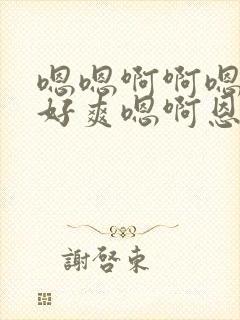 嗯嗯啊啊嗯
好爽嗯啊恩
謝啓東